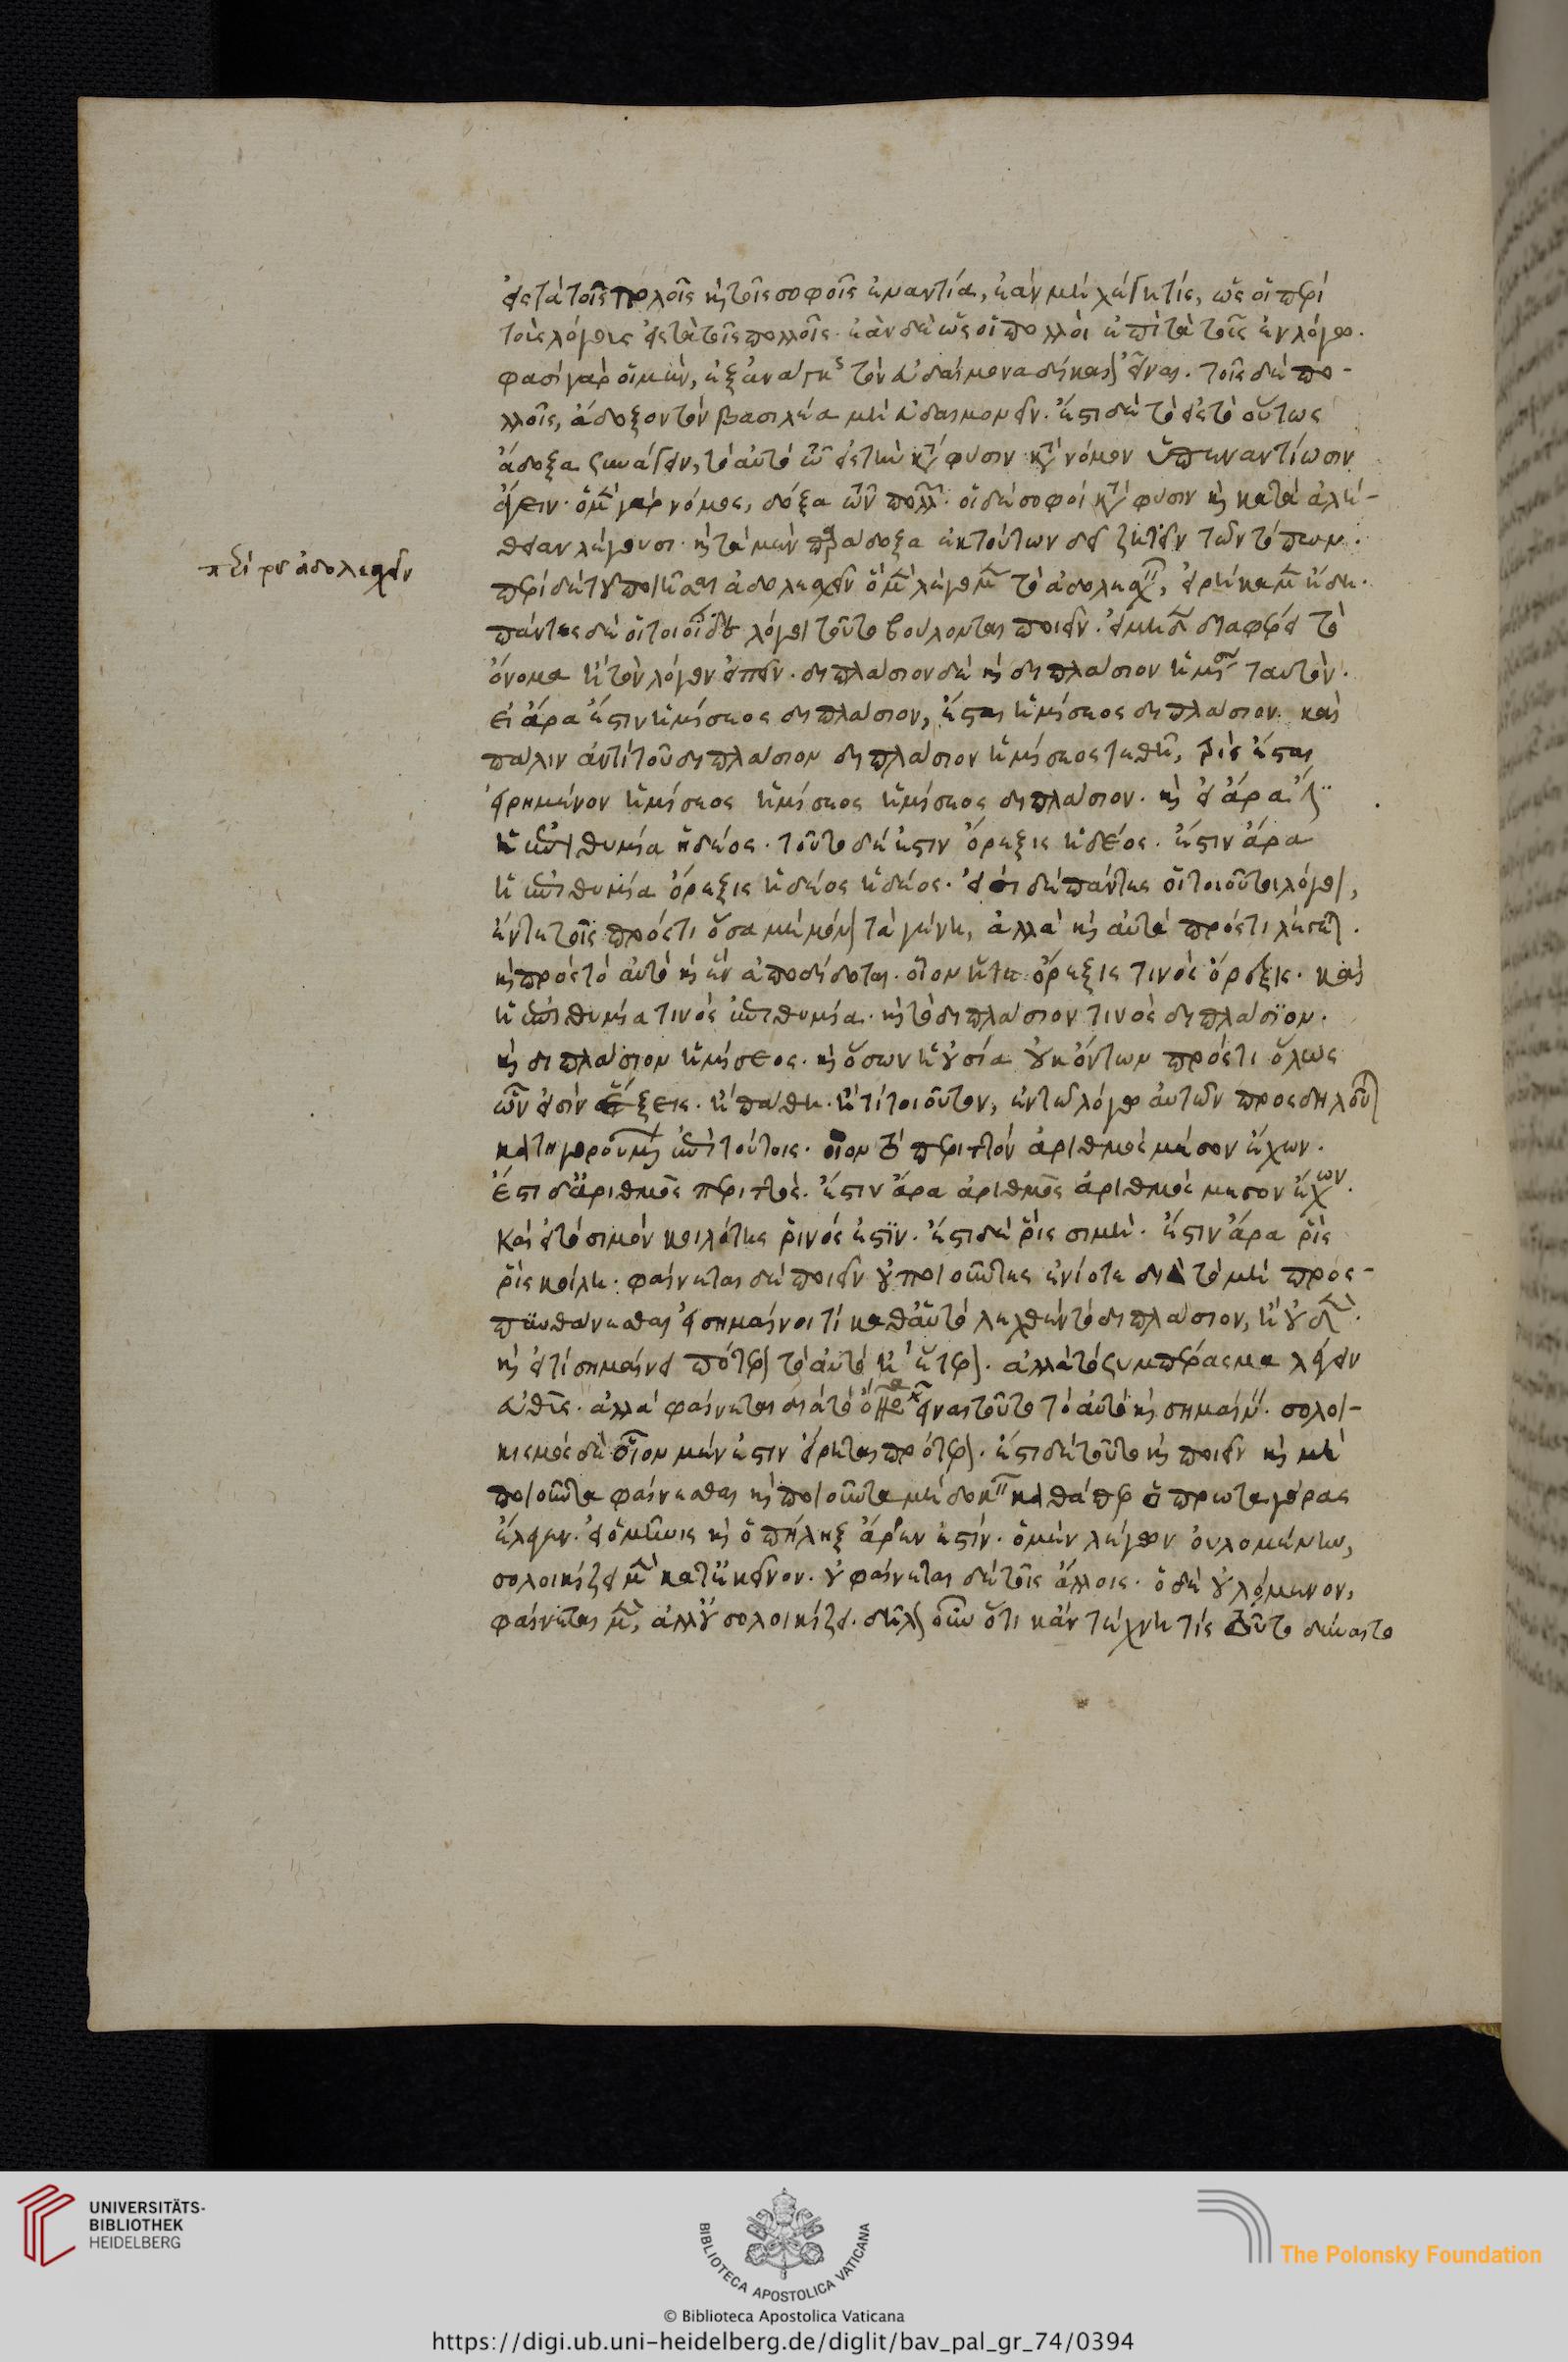 εἰς τὰ τοῖς πολοῖς καὶ τοῖς σοφοῖς ἐναντία, ἐὰν μὲν λέγῃ τίς, ὡς οἱ περὶ
τοὺς λόγους εἰς τὰ τοῖς πολλοῖς. ἐὰν δὲ ὡς οἱ πολλοὶ ἐπὶ τὰ τοῖς ἐν λόγῳ.
φασὶ γὰρ οἱ μὲν, ἐξ ἀνάγκης τὸν εὐδαίμονα δίκαιον εἶναι. τοῖς δὲ πο-
λλοῖς, ἄδοξον τὸν βασιλέα μὴ εὐδαιμονεῖν. ἔστι δὲ τὸ εἰς τὸ οὕτως
ἄδοξα συνάγειν, τὸ αὐτὸ τῶ εἰς τὴν κατὰ φύσιν κατὰ νόμον ὑπεναντίωσιν
ἄγειν. ὁ μὲν γὰρ νόμος, δόξα τῶν πολλῶν. οἱ δὲ σοφοὶ κατὰ φύσιν καὶ κατὰ ἀλή-
θειαν λέγουσι. καὶ τὰ μὲν παράδοξα ἐκ τούτων δεῖ ζητεῖν τῶν τόπων.
περὶ τοῦ ἀδολεσχεῖν
περὶ δὲ τοῦ ποιῆσαι ἀδολεσχεῖν ὃ μὲν λέγομεν τὸ ἀδολεσχεῖν, εἰρήκαμεν ἤδη.
πάντες δὲ οἱ τοιοίδε λόγοι τοῦτο βούλονται ποιεῖν. εἰ μηδὲν διαφέρει τὸ
ὄνομα ἢ τὸν λόγον εἰπεῖν. διπλάσιον δὲ καὶ διπλάσιον ἡμίσεος ταυτόν.
εἰ ἄρα ἐστὶν ἡμίσεος διπλάσιον, ἔσται ἡμίσεος διπλάσιον. καὶ
πάλιν ἀντὶ τοῦ διπλάσιον διπλάσιον ἡμίσεος τεθῇ, τρὶς ἔσται
εἰρημένον ἡμίσεος ἡμίσεος ἡμίσεος διπλάσιον. καὶ εἰ ἄρα ἐστὶν
ἡ ἐπιθυμία ἡδέος. τοῦτο δέ ἐστιν ὄρεξις ἡδέος. ἔστιν ἄρα
ἡ ἐπιθυμία ὄρεξις ἡδέος ἡδέος. εἰσὶ δὲ πάντες οἱ τοιοῦτοι λόγοι,
ἔν τε τοῖς πρός τι ὅσα μὴ μόνον τὰ γένη, ἀλλὰ καὶ αὐτὰ πρός τι λέγεται.
καὶ πρὸς τὸ αὐτὸ καὶ ἓν ἀποδίδοται. οἷον ἥτε ὄρεξις τινὸς ὄρεξις. καὶ
ἡ ἐπιθυμία τινὸς ἐπιθυμία. καὶ τὸ διπλάσιον τινὸς διπλάσιον.
καὶ διπλάσιον ἡμίσεος. καὶ ὅσων ἡ οὐσία οὐκ ὄντων πρός τι ὅλως
ὧν εἰσὶν ἕξεις. ἢ πάθη. ἤ τι τοιοῦτον, ἐν τῶ λόγῳ αὐτῶν προσδηλοῦται
κατηγορούμενον ἐπὶ τούτοις. οἷον τὸ περιττὸν ἀριθμὸς μέσον ἔχων.
ἔστι δ᾽ ἀριθμὸς περιττός. ἔστιν ἄρα ἀριθμὸς ἀριθμὸς μέσον ἔχων.
καὶ εἰ τὸ σιμὸν κοιλότης ῥινός ἐστιν. ἔστι δὲ ῥὶς σιμή. ἔστιν ἄρα ῥὶς
ῥὶς κοίλη. φαίνεται δὲ ποιεῖν οὐ ποιοῦντες ἐνίοτε διὰ τὸ μὴ προς-
πυνθάνεσθαι εἰ σημαίνει τί καθ᾽ αὑτὸ λεχθὲν τὸ διπλάσιον, ἢ οὐδέν.
καὶ εἰ τί σημαίνει πότερον τὸ αὐτὸ ἢ ἕτερον. ἀλλὰ τὸ συμπέρασμα λέγειν
εὐθύς. ἀλλὰ φαίνεται διὰ τὸ ὄνομα εἶναι τοῦτο τὸ αὐτὸ καὶ σημαίνειν. σολοι-
κισμὸς δὲ οἷον μέν ἐστιν εἴρηται πρότερον. ἔστι δὲ τοῦτο καὶ ποιεῖν καὶ μὴ
ποιοῦντα φαίνεσθαι καὶ ποιοῦντα μὴ δοκεῖν καθάπερ ὁ πρωταγόρας
ἔλεγεν. εἰ ὁ μῆνις καὶ ὁ πήληξ ἄρεν ἐστίν. ὁ μὲν λέγων οὐλομένην,
σολοικίζει μὲν κατ᾽ ἐκεῖνον. οὐ φαίνεται δὲ τοῖς ἄλλοις. ὁ δὲ οὐλόμενον,
φαίνεται μὲν, ἀλλ᾽ οὐ σολοικίζει. δῆλον οὖν ὅτι κἂν τέχνῃ τίς τοῦτο δύναιτο
UNIVERSITÄTS-
BIBLIOTHEK
HEIDELBERG
BIBLIOTECA APOSTOLICA VATICANA
The Polonsky Foundation
© Biblioteca Apostolica Vaticana
https://digi.ub.uni-heidelberg.de/diglit/bav_pal_gr_74/0394